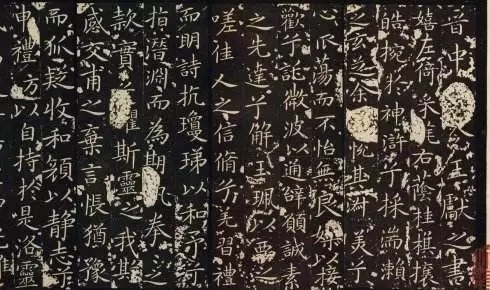 晉中王獻之書
嬉左倚采旄右蔭桂旗攘
皓捥於神滸兮採湍瀨
之玄芝余悅其淑美兮
心振蕩而不怡無良媒以接
歡兮託微波以通辭願誠素
之先達兮解玉珮以要之
嗟佳人之信脩兮羌習禮
而明詩抗瓊珶以和予兮
指潛淵而為期執眷之
款實懼斯靈之我欺
感交甫之棄言悵猶豫
而狐疑收和顏以静志兮
申禮防以自持於是洛靈